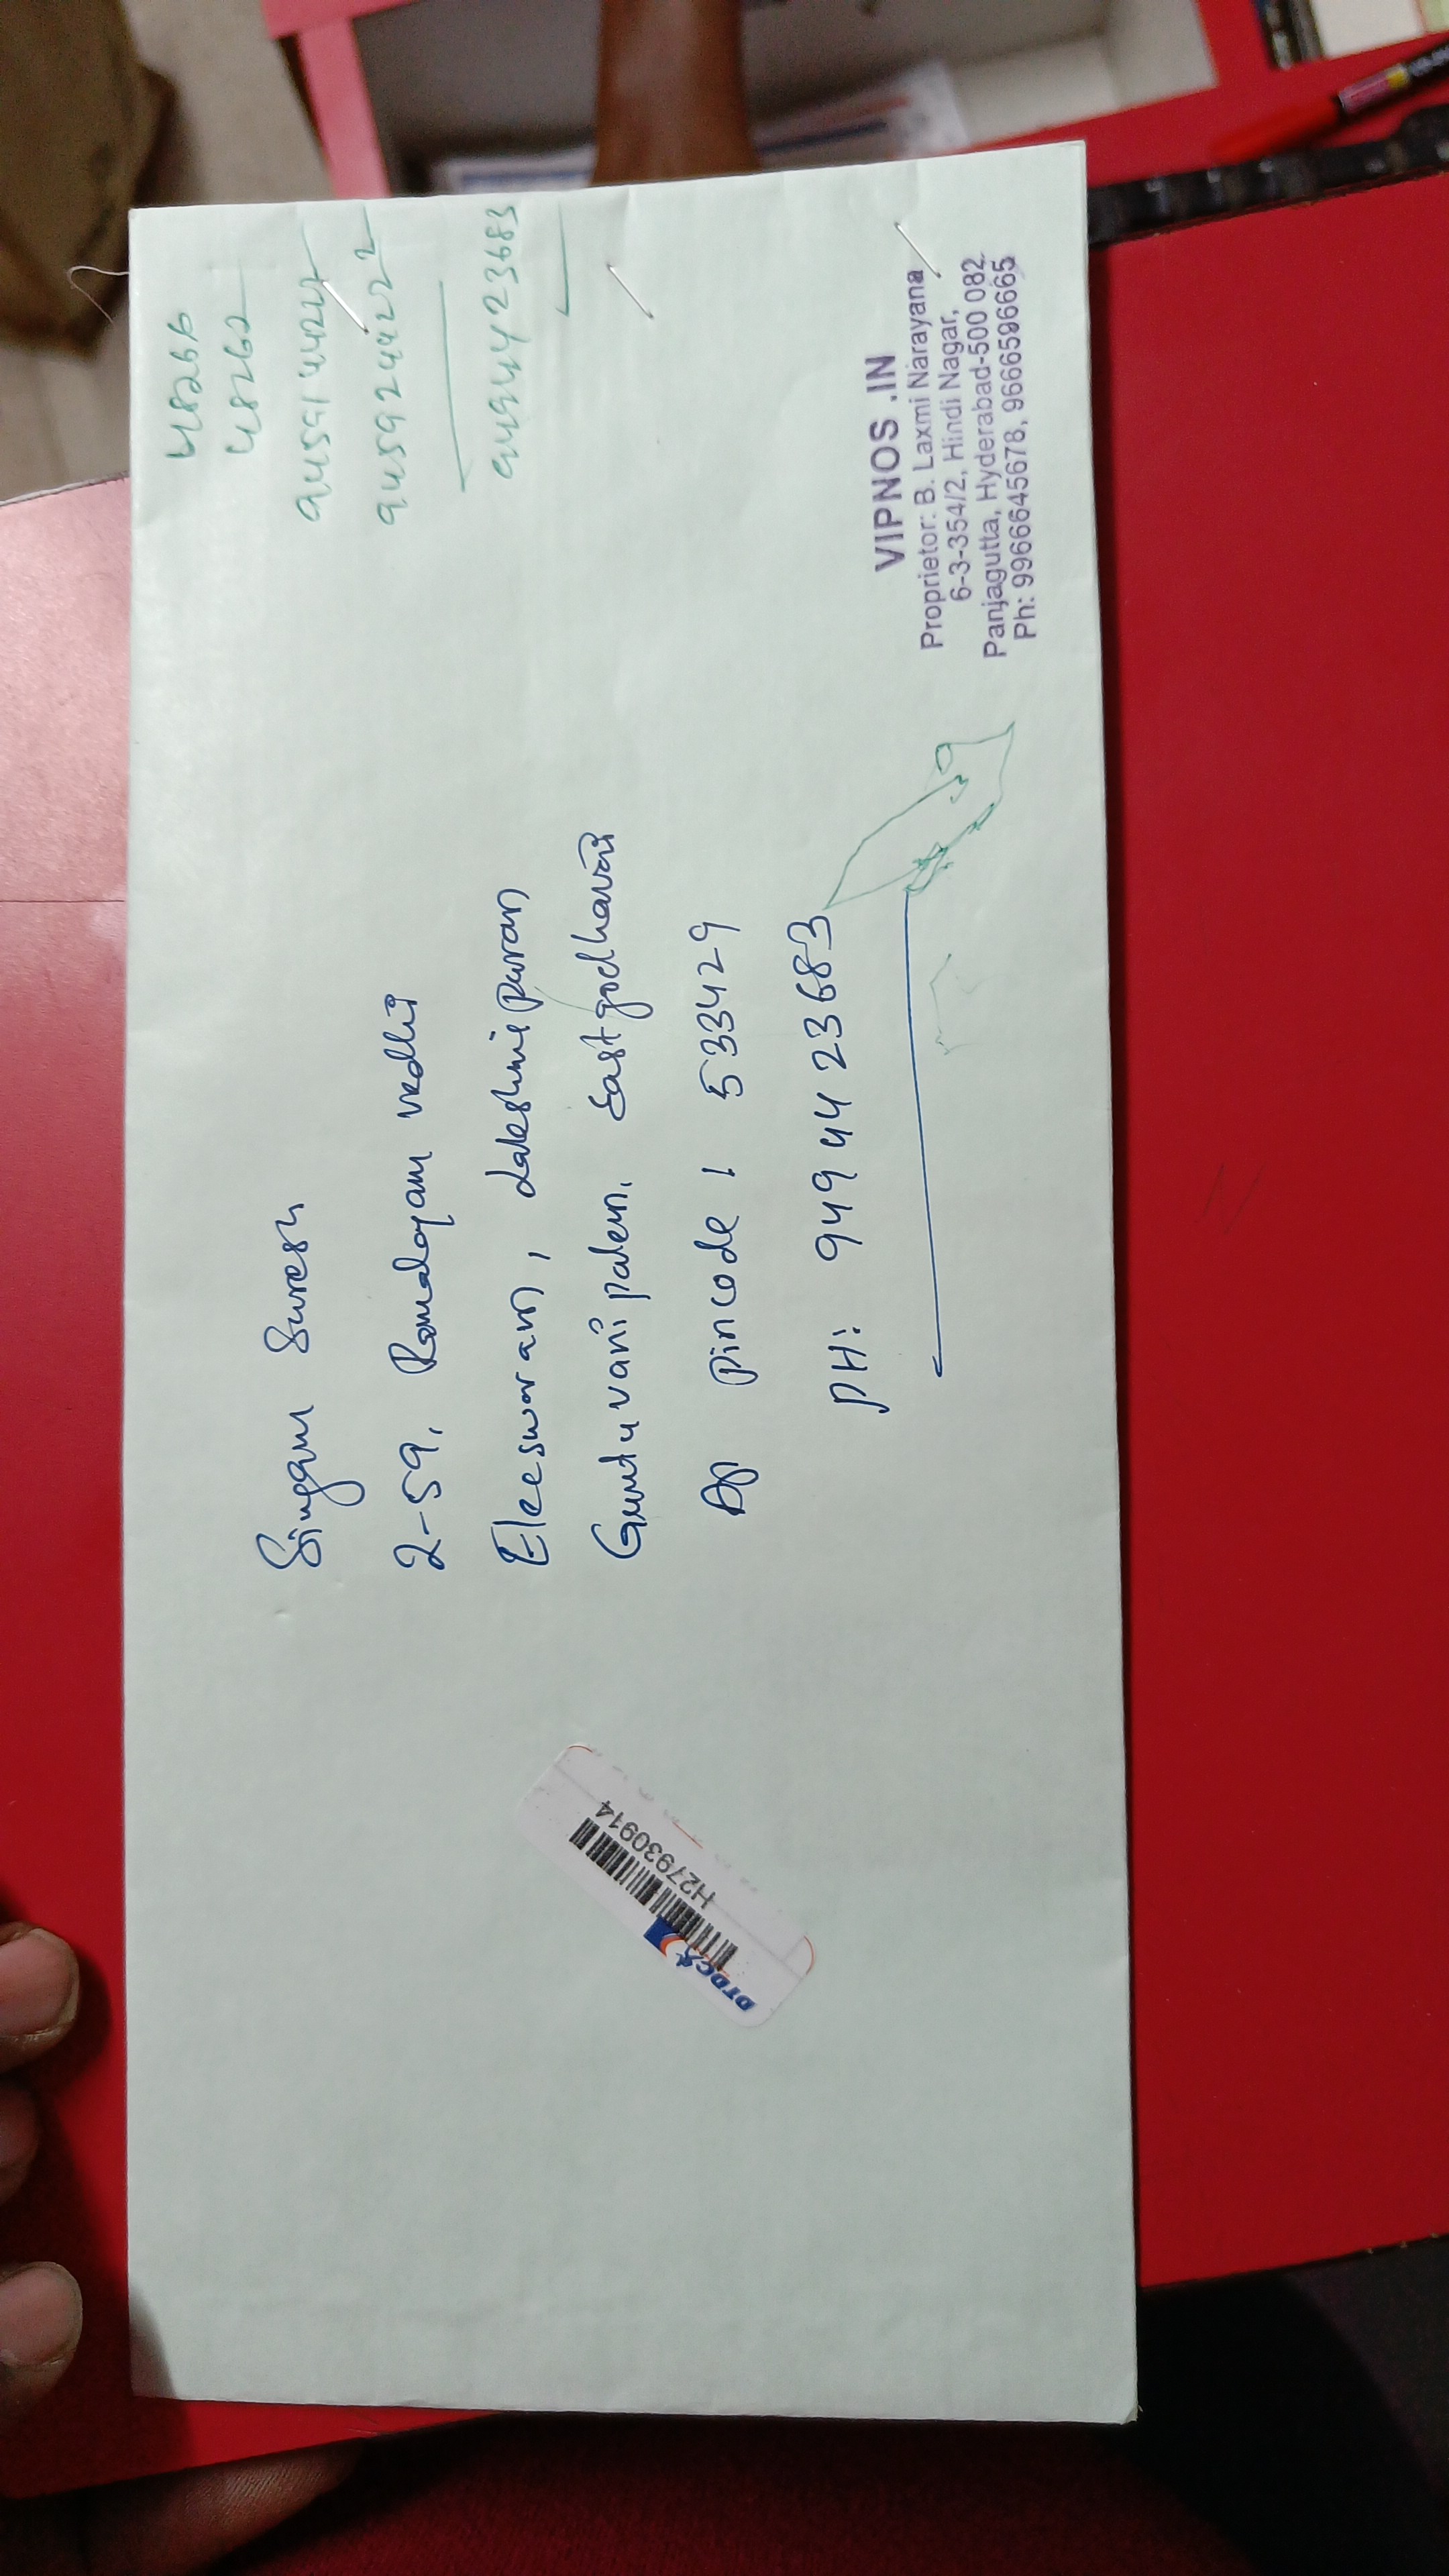 48266
48262
9459144244
9459244222
9494423683
Singam Suresh
2-59, Ramalayam vedhi
Eleeswaram, Lakshmi puram
Guntuvanipalem. East godhavari
AP Pincode : 533429
PH: 9494423683
VIPNOS .IN
Proprietor: B. Laxmi Narayana
6-3-354/2, Hindi Nagar,
Panjagutta, Hyderabad-500 082.
Ph: 9966645678, 9666596665
DTDC
H27930914